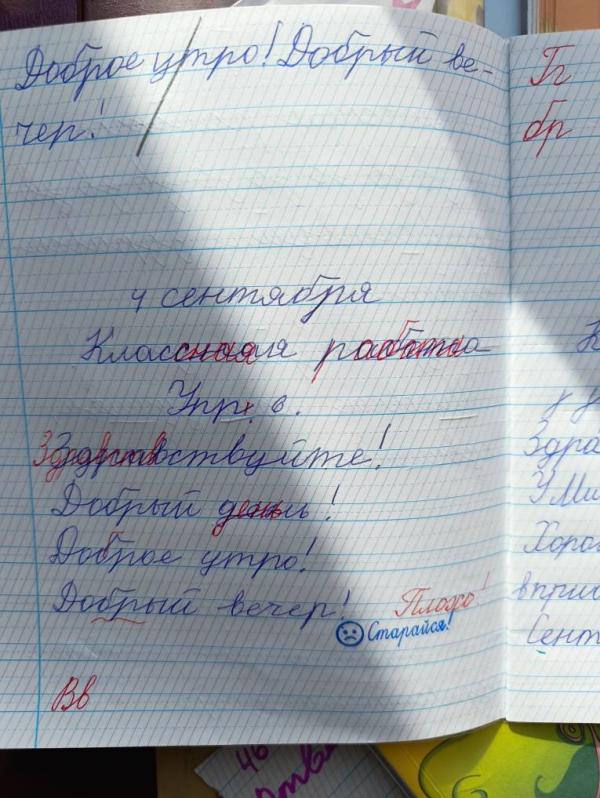 Доброе утро! Добрый ве-
чер!
4 сентября
Классная работа
Упр. 6.
Здравствуйте!
Добрый день!
Доброе утро!
Добрый вечер! Плохо!
Старайся!
Вв
Гг
бр
Здра
Уми
Хоро
Сент
46